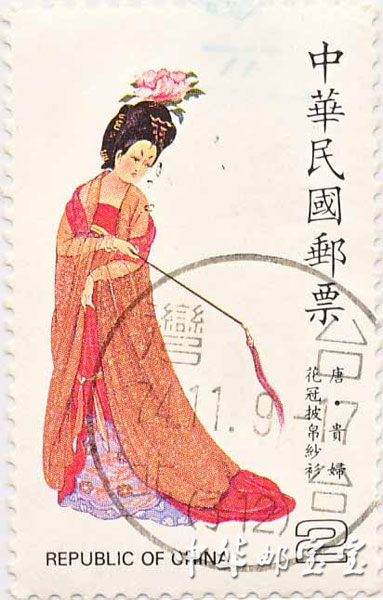 中華民國郵票
唐・貴婦
花冠披帛紗衫
2
REPUBLIC OF CHINA
台灣
74.11.9-17
(512)
中华邮宝宝